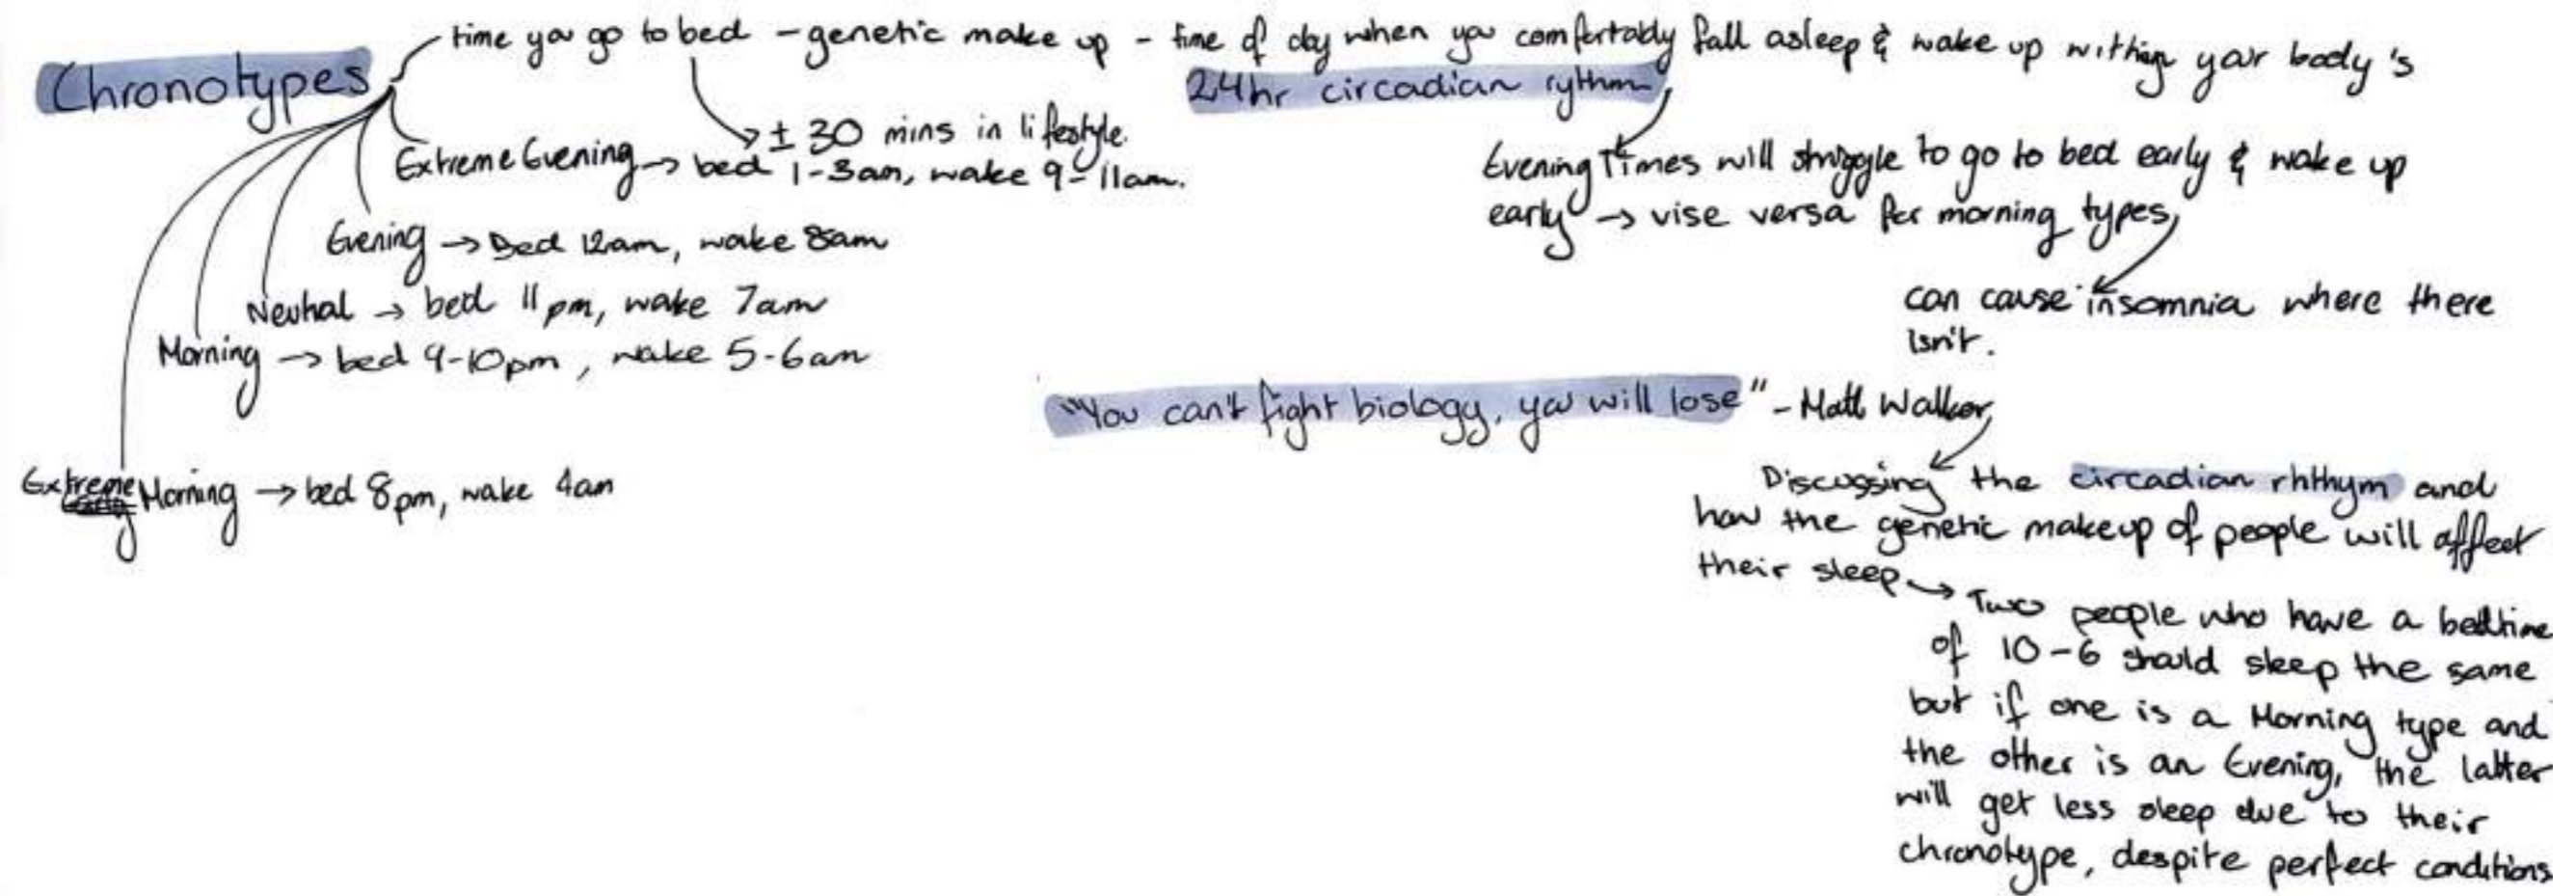 Chronotypes
time you go to bed - genetic make up - time of day when you comfortably fall asleep & wake up within your body's
24hr circadian rythm
→ ± 30 mins in lifestyle.
Extreme Evening → bed 1-3am, wake 9-11am.
Evening → Bed 12am, wake 8am
Neutral → bed 11pm, wake 7am
Morning → bed 9-10pm, wake 5-6am
Extreme Morning → bed 8pm, wake 4am
Evening Times will struggle to go to bed early & wake up
early → vise versa for morning types
can cause insomnia where there
isn't.
"You can't fight biology, you will lose" - Matt Walker
Discussing the circadian rhthym and
how the genetic makeup of people will affect
their sleep →
Two people who have a bedtime
of 10-6 should sleep the same
but if one is a Morning type and
the other is an Evening, the latter
will get less sleep due to their
chronotype, despite perfect conditions